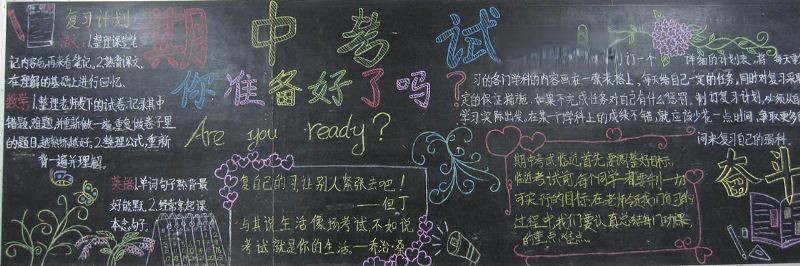 复习计划
语文:1.整理课堂笔
记内容后,再来看笔记,2.熟读课文,
在理解的基础上进行回忆。
数学:1.整理老师发下的试卷,记录其中
错题,难题,并重新做一遍,重复做卷子里
的题目,越熟练越好,2.整理公式,重新
背一遍并理解。
英语:1.单词句子熟背最
好能默,2.经常拿起课
本念句子。
期中考试
你准备好了吗?
Are you ready?
复自己的习,让别人紧张去吧!
——但丁
与其说生活像场考试,不如说
考试就是你的生活——乔治·桑
制订一个 详细的计划表,将 每天复
习的各门学科的内容画在一张表格上,每天给自己一定的任务,同时对复习采取
定的保证措施,如果不完成任务对自己有什么惩罚。制订复习计划,必须从自
学习实际出发,在某一个学科上的成绩不错,就应该少花一点时间,争取更多
间来复习自己的弱科。
期中考试临近,首先,要调整好目标,
临近考试前,每个同学一定要制一切
可实行的目标,在老师领我们复习的
过程中,我们要认真总结每门功课
的重点,难点。
奋斗